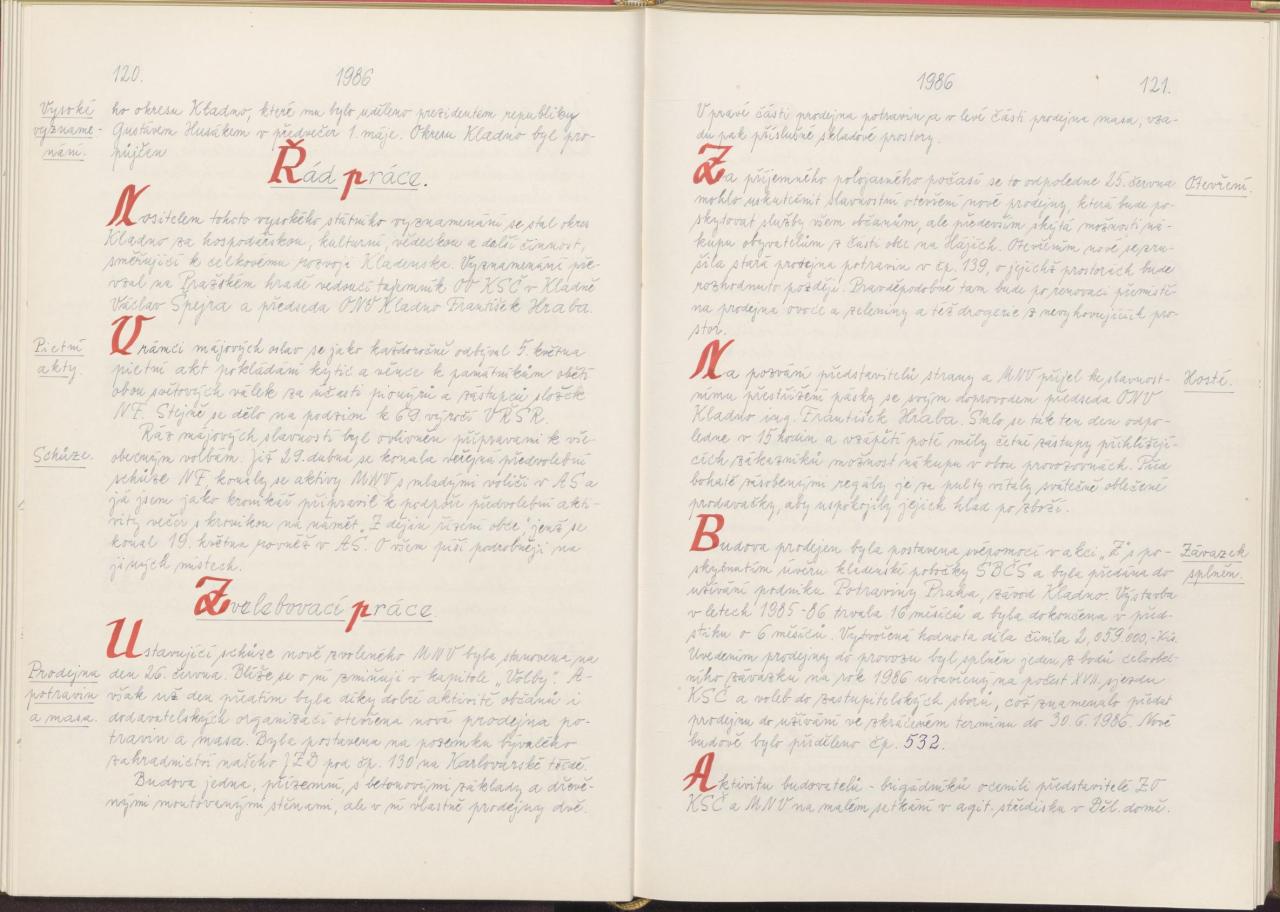 120.
1986
Vysoké
vyzname-
nání.
ho okresu Kladno, které mu bylo uděleno prezidentem republiky
Gustávem Husákem v předvečer 1. máje. Okresu Kladno byl pro-
půjčen
Řád práce.
Nositelem tohoto vysokého státního vyznamenání se stal okres
Kladno za hospodářskou, kulturní, vědeckou a další činnost,
směřující k celkovému rozvoji Kladenska. Vyznamenání pře-
vzal na Pražském hradě vedoucí tajemník OV KSČ v Kladně
Václav Špejra a předseda ONV Kladno František Hraba.
Pietní
akty.
V rámci májových oslav se jako každoročně odbýval 5. května
pietní akt pokládání kytic a věnce k památníkům obětí
obou světových válek za účasti pionýrů a zástupců složek
NF. Stejně se dělo na podzim k 69. výročí VŘSR.
Schůze.
Ráz májových slavností byl ovlivněn přípravami k vše-
obecným volbám. Již 29. dubna se konala veřejná předvolební
schůze NF, konaly se aktivy MNV s mladými voliči v AS a
já jsem jako kronikář připravil k podpoře předvolební akti-
vity večer s kronikou na námět „Z dějin řízení obce", jenž se
konal 19. května rovněž v AS. O všem píši podrobněji na
jiných místech.
Zvelebovací práce
Prodejna
potravin
a masa.
Ustavující schůze nově zvoleného MNV byla stanovena na
den 26. června. Blíže se o ní zmiňuji v kapitole „Volby". A-
však už den předtím byla díky dobré aktivitě občanů i
dodavatelských organizací otevřena nová prodejna po-
travin a masa. Byla postavena na pozemku bývalého
zahradnictví našeho JZD pod čp. 130 na Karlovarské třídě.
Budova jedna, přízemní, s betonovými základy a dřevě-
nými montovanými stěnami, ale v ní vlastně prodejny dvě.
1986
121.
V pravé části prodejna potravin a v levé části prodejna masa, vza-
du pak příslušné skladové prostory.
Otevření.
Za příjemného polojasného počasí se to odpoledne 25. června
mohlo uskutečnit slavnostní otevření nové prodejny, která bude po-
skytovat služby všem občanům, ale především skýtá možnosti ná-
kupu obyvatelům z části obce na Hájích. Otevřením nové se zru-
šila stará prodejna potravin v čp. 139, o jejíchž prostorách bude
rozhodnuto později. Pravděpodobně tam bude po renovaci přemístě-
na prodejna ovoce a zeleniny a též drogerie z nevyhovujících pro-
stor.
Hosté.
Na pozvání představitelů strany a MNV přijel ke slavnost-
nímu přestřižení pásky se svým doprovodem předseda ONV
Kladno ing. František Hraba. Stalo se tak ten den odpo-
ledne v 15 hodin a vzápětí poté měly četné zástupy přihlížejí-
cích zákazníků možnost nákupu v obou provozovnách. Před
bohatě zásobenými regály je za pulty vítaly svátečně oblečené
prodavačky, aby uspokojily jejich hlad po zboží.
Závazek
splněn.
Budova prodejen byla postavena svépomocí v akci „Z" s po-
skytnutím úvěru kladenské pobočky SBČS a byla předána do
užívání podniku Potraviny Praha, závod Kladno. Výstavba
v letech 1985-86 trvala 16 měsíců a byla dokončena v před-
stihu o 6 měsíců. Vytvořená hodnota díla činila 2,059.000.- Kčs.
Uvedením prodejny do provozu byl splněn jeden z bodů celoobec-
ního závazku na rok 1986 uzavřený na počest XVII. sjezdu
KSČ a voleb do zastupitelských sborů, což znamenalo předat
prodejnu do užívání ve zkráceném termínu do 30.6.1986. Nové
budově bylo přiděleno čp. 532.
Aktivitu budovatelů - brigádníků ocenili představitelé ZO
KSČ a MNV na malém setkání v agit. středisku v Děl. domě.